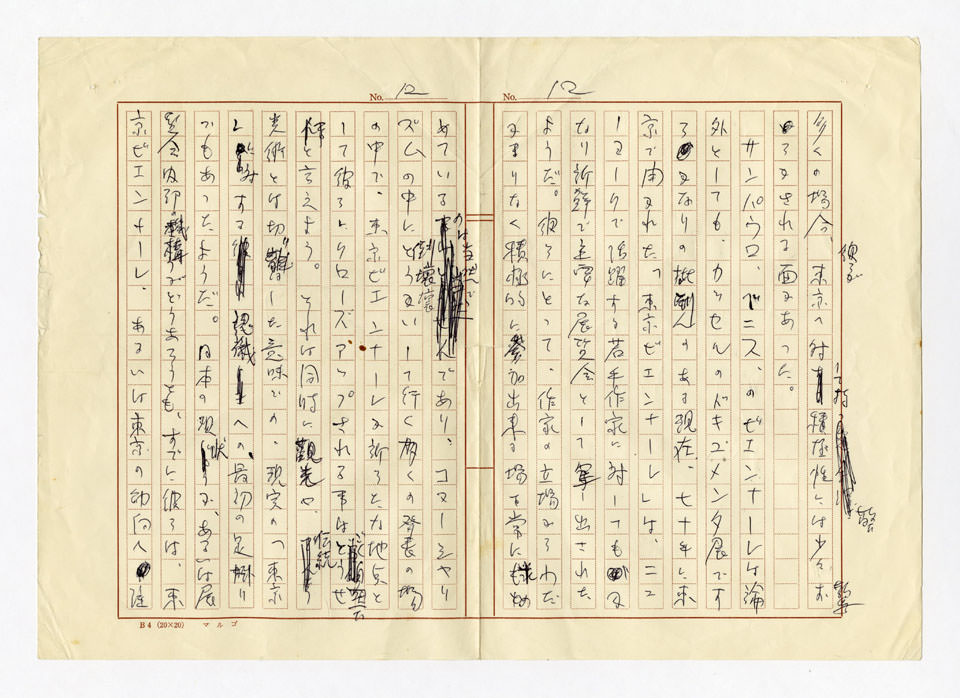 No. 12
多くの場合、東京へ対する積極性には少々お
彼らが
して持つ
驚
ろかされる面もあった。
サンパウロ、ベニス、のビエンナーレは論
外としても、カッセルのドキュメンタ展です
らかなりの批判のある現在、七十年に東
京で開かれた「東京ビエンナーレ」は、ニュ
ーヨークで活躍する若手作家に対しても か
なり新鮮で重要な展覧会として写し出された
ようだ。彼らにとって、作家の立場からわだ
かまりなく積極的に参加出来る場を常に求め
No. 12
ている のは当然で あり、コマーシャリ
ズムの中に 崩壊 して行く多くの発表の場
の中で、東京ビエンナーレが新らたな地点と
して彼らにクローズアップされる事は
と言えよう。それは同時に観光や、伝統
美術とは切り離した意味での、現実の「東京
」に対する 認識 への、最初の足掛り
でもあったようだ。日本の現状 が、あるいは展
覧会内部の機構がどうあろうとも、すでに彼らは、東
京ビエンナーレ、あるいは東京の動向へ
B4 (20×20) マルゴ